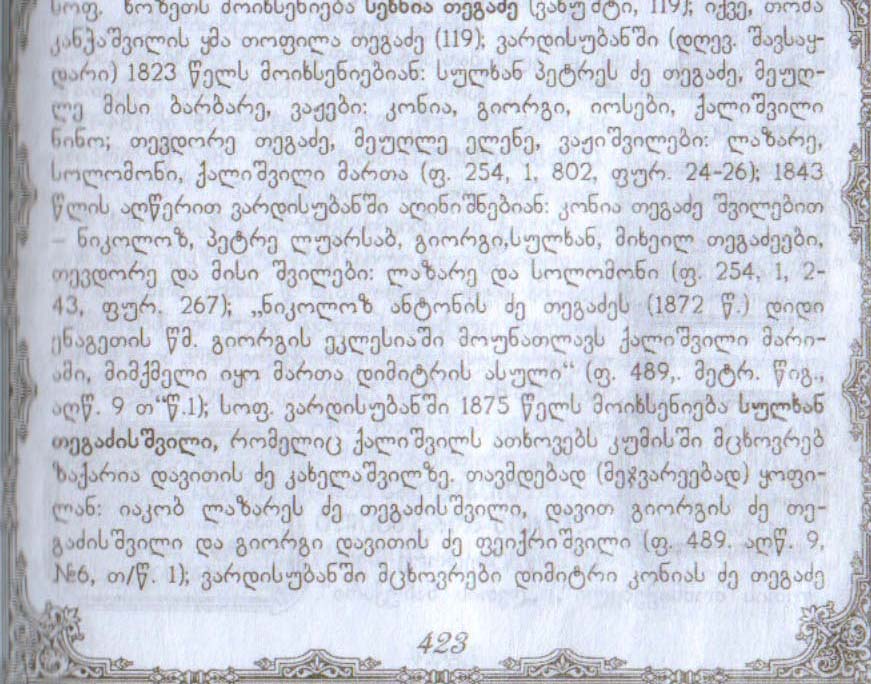 სოფ. ნოზეთს მოიხსენიება სეხნია თეგაძე (ვახუშტი, 119); იქვე, თომა
კანჭაშვილის ყმა თოფილა თეგაძე (119); ვარდისუბანში (დღევ. შავსაყ-
დარი) 1823 წელს მოიხსენიებიან: სულხან პეტრეს ძე თეგაძე, მეუღ-
ლე მისი ბარბარე, ვაჟები: კონია, გიორგი, იოსები, ქალიშვილი
ნინო; თევდორე თეგაძე, მეუღლე ელენე, ვაჟიშვილები: ლაზარე,
სოლომონი, ქალიშვილი მართა (ფ. 254, 1, 802, ფურ. 24-26); 1843
წლის აღწერით ვარდისუბანში აღინიშნებიან: კონია თეგაძე შვილებით
– ნიკოლოზ, პეტრე ლუარსაბ, გიორგი,სულხან, მიხეილ თეგაძეები,
თევდორე და მისი შვილები: ლაზარე და სოლომონი (ფ. 254, 1, 2-
43, ფურ. 267); „ნიკოლოზ ანტონის ძე თეგაძეს (1872 წ.) დიდი
ენაგეთის წმ. გიორგის ეკლესიაში მოუნათლავს ქალიშვილი მარი-
ამი, მიმქმელი იყო მართა დიმიტრის ასული“ (ფ. 489,. მეტრ. წიგ.,
აღწ. 9 თ“წ.1); სოფ. ვარდისუბანში 1875 წელს მოიხსენიება სულხან
თეგაძისშვილი, რომელიც ქალიშვილს ათხოვებს კუმისში მცხოვრებ
ზაქარია დავითის ძე კახელაშვილზე. თავმდებად (მეჯვარეებად) ყოფი-
ლან: იაკობ ლაზარეს ძე თეგაძისშვილი, დავით გიორგის ძე თე-
გაძისშვილი და გიორგი დავითის ძე ფეიქრიშვილი (ფ. 489, აღწ. 9,
№6, თ/წ. 1); ვარდისუბანში მცხოვრები დიმიტრი კონიას ძე თეგაძე
423